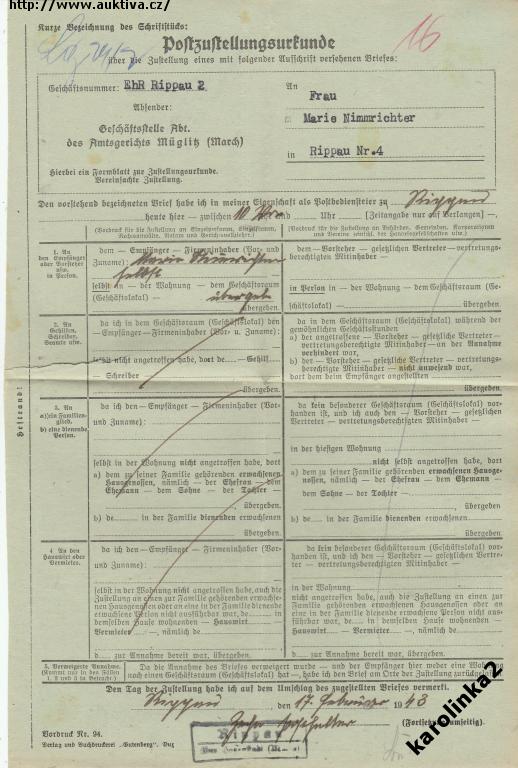 http://www.auktiva.cz/
Kurze Bezeichnung des Schriftstücks:
16
Postzustellungsurkunde
über die Zustellung eines mit folgender Aufschrift versehenen Briefes:
Geschäftsnummer: EhR Rippau 2
Absender:
Geschäftsstelle Abt.
des Amtsgerichts Müglitz (March)
Hierbei ein Formblatt zur Zustellungsurkunde.
Vereinfachte Zustellung.
An
Frau
Marie Nimmrichter
in Rippau Nr.4
Den vorstehend bezeichneten Brief habe ich in meiner Eigenschaft als Postbediensteter zu Rippau
heute hier — zwischen 10 Uhr und Uhr [Zeitangabe nur auf Verlangen] —,
(Vordruck für die Zustellung an Einzelpersonen, Einzelfirmen, Rechtsanwälte, Notare und Gerichtsvollzieher.)
(Vordruck für die Zustellung an Behörden, Gemeinden, Korporationen und Vereine einschl. der Handelsgesellschaften usw.)
1. An den Empfänger oder Vorsteher usw. in Person.
dem — Empfänger — Firmeninhaber (Vor- und
Zuname): Marie Nimmrichter
selbst
selbst in — der Wohnung — dem Geschäftsraum
(Geschäftslokal) — übergeb
übergeben.
dem — Vorsteher — gesetzlichen Vertreter — vertretungs-
berechtigten Mitinhaber —
in Person in — der Wohnung — dem Geschäftsraum (Ge-
schäftslokal) —
übergeben.
2. An Gehilfen, Schreiber, Beamte usw.
da ich in dem Geschäftsraum (Geschäftslokal) den
— Empfänger — Firmeninhaber (Vor- u. Zuname):
selbst nicht angetroffen habe, dort de — Gehilf
— Schreiber —
übergeben.
da in dem Geschäftsraum (Geschäftslokal) während der
gewöhnlichen Geschäftsstunden
a) der angetroffene — Vorsteher — gesetzliche Vertreter —
vertretungsberechtigte Mitinhaber — an der Annahme
verhindert war,
b) der — Vorsteher — gesetzliche Vertreter — vertretungs-
berechtigte Mitinhaber — nicht anwesend war,
dort dem beim Empfänger angestellten
übergeben.
3. An
a) ein Familienglied,
b) eine dienende Person.
da ich den — Empfänger — Firmeninhaber (Vor-
und Zuname):
selbst in der Wohnung nicht angetroffen habe, dort
a) dem zu seiner Familie gehörenden erwachsenen
Hausgenossen, nämlich — der Ehefrau — dem
Ehemann — dem Sohne — der Tochter —
übergeben.
b) de in der Familie dienenden erwachsenen
übergeben.
da kein besonderer Geschäftsraum (Geschäftslokal) vor-
handen ist, und ich auch den — Vorsteher — gesetzlichen
Vertreter — vertretungsberechtigten Mitinhaber —
in der hiesigen Wohnung
nicht angetroffen habe, dort
a) dem zu seiner Familie gehörenden erwachsenen Hausge-
nossen, nämlich — der Ehefrau — dem Ehemann —
dem Sohne — der Tochter —
übergeben.
b) de in der Familie dienenden erwachsenen
übergeben.
4. An den Hauswirt oder Vermieter.
da ich den — Empfänger — Firmeninhaber (Vor-
und Zuname):
selbst in der Wohnung nicht angetroffen habe, auch die
Zustellung an einen zur Familie gehörenden erwachse-
nen Hausgenossen oder an eine in der Familie dienende
erwachsene Person nicht ausführbar war, de in
demselben Hause wohnenden — Hauswirt —
Vermieter —, nämlich de
d zur Annahme bereit war, übergeben.
da kein besonderer Geschäftsraum (Geschäftslokal) vor-
handen ist, und ich den — Vorsteher — gesetzlichen Vertreter —
vertretungsberechtigten Mitinhaber —
in der Wohnung
nicht angetroffen habe, auch die Zustellung an einen zur
Familie gehörenden erwachsenen Hausgenossen oder an
eine in der Familie dienende erwachsene Person nicht aus-
führbar war, de in demselben Hause wohnenden
Hauswirt — Vermieter —, nämlich de
d zur Annahme bereit war, übergeben.
5. Verweigerte Annahme.
Da die Annahme des Briefes verweigert wurde — und der Empfänger hier weder eine Wohnung
noch einen Geschäftsraum (Geschäftslokal) hat —, habe ich den Brief am Orte der Zustellung zurückgelassen
Den Tag der Zustellung habe ich auf dem Umschlag des zugestellten Briefes vermerkt.
Rippau, den 17. Februar 1943
Rippau
(Fortsetzung umseitig).
Vordruck Nr. 94.
Verlag und Buchdruckerei „Gutenberg",
Heftrand:
karolinka2